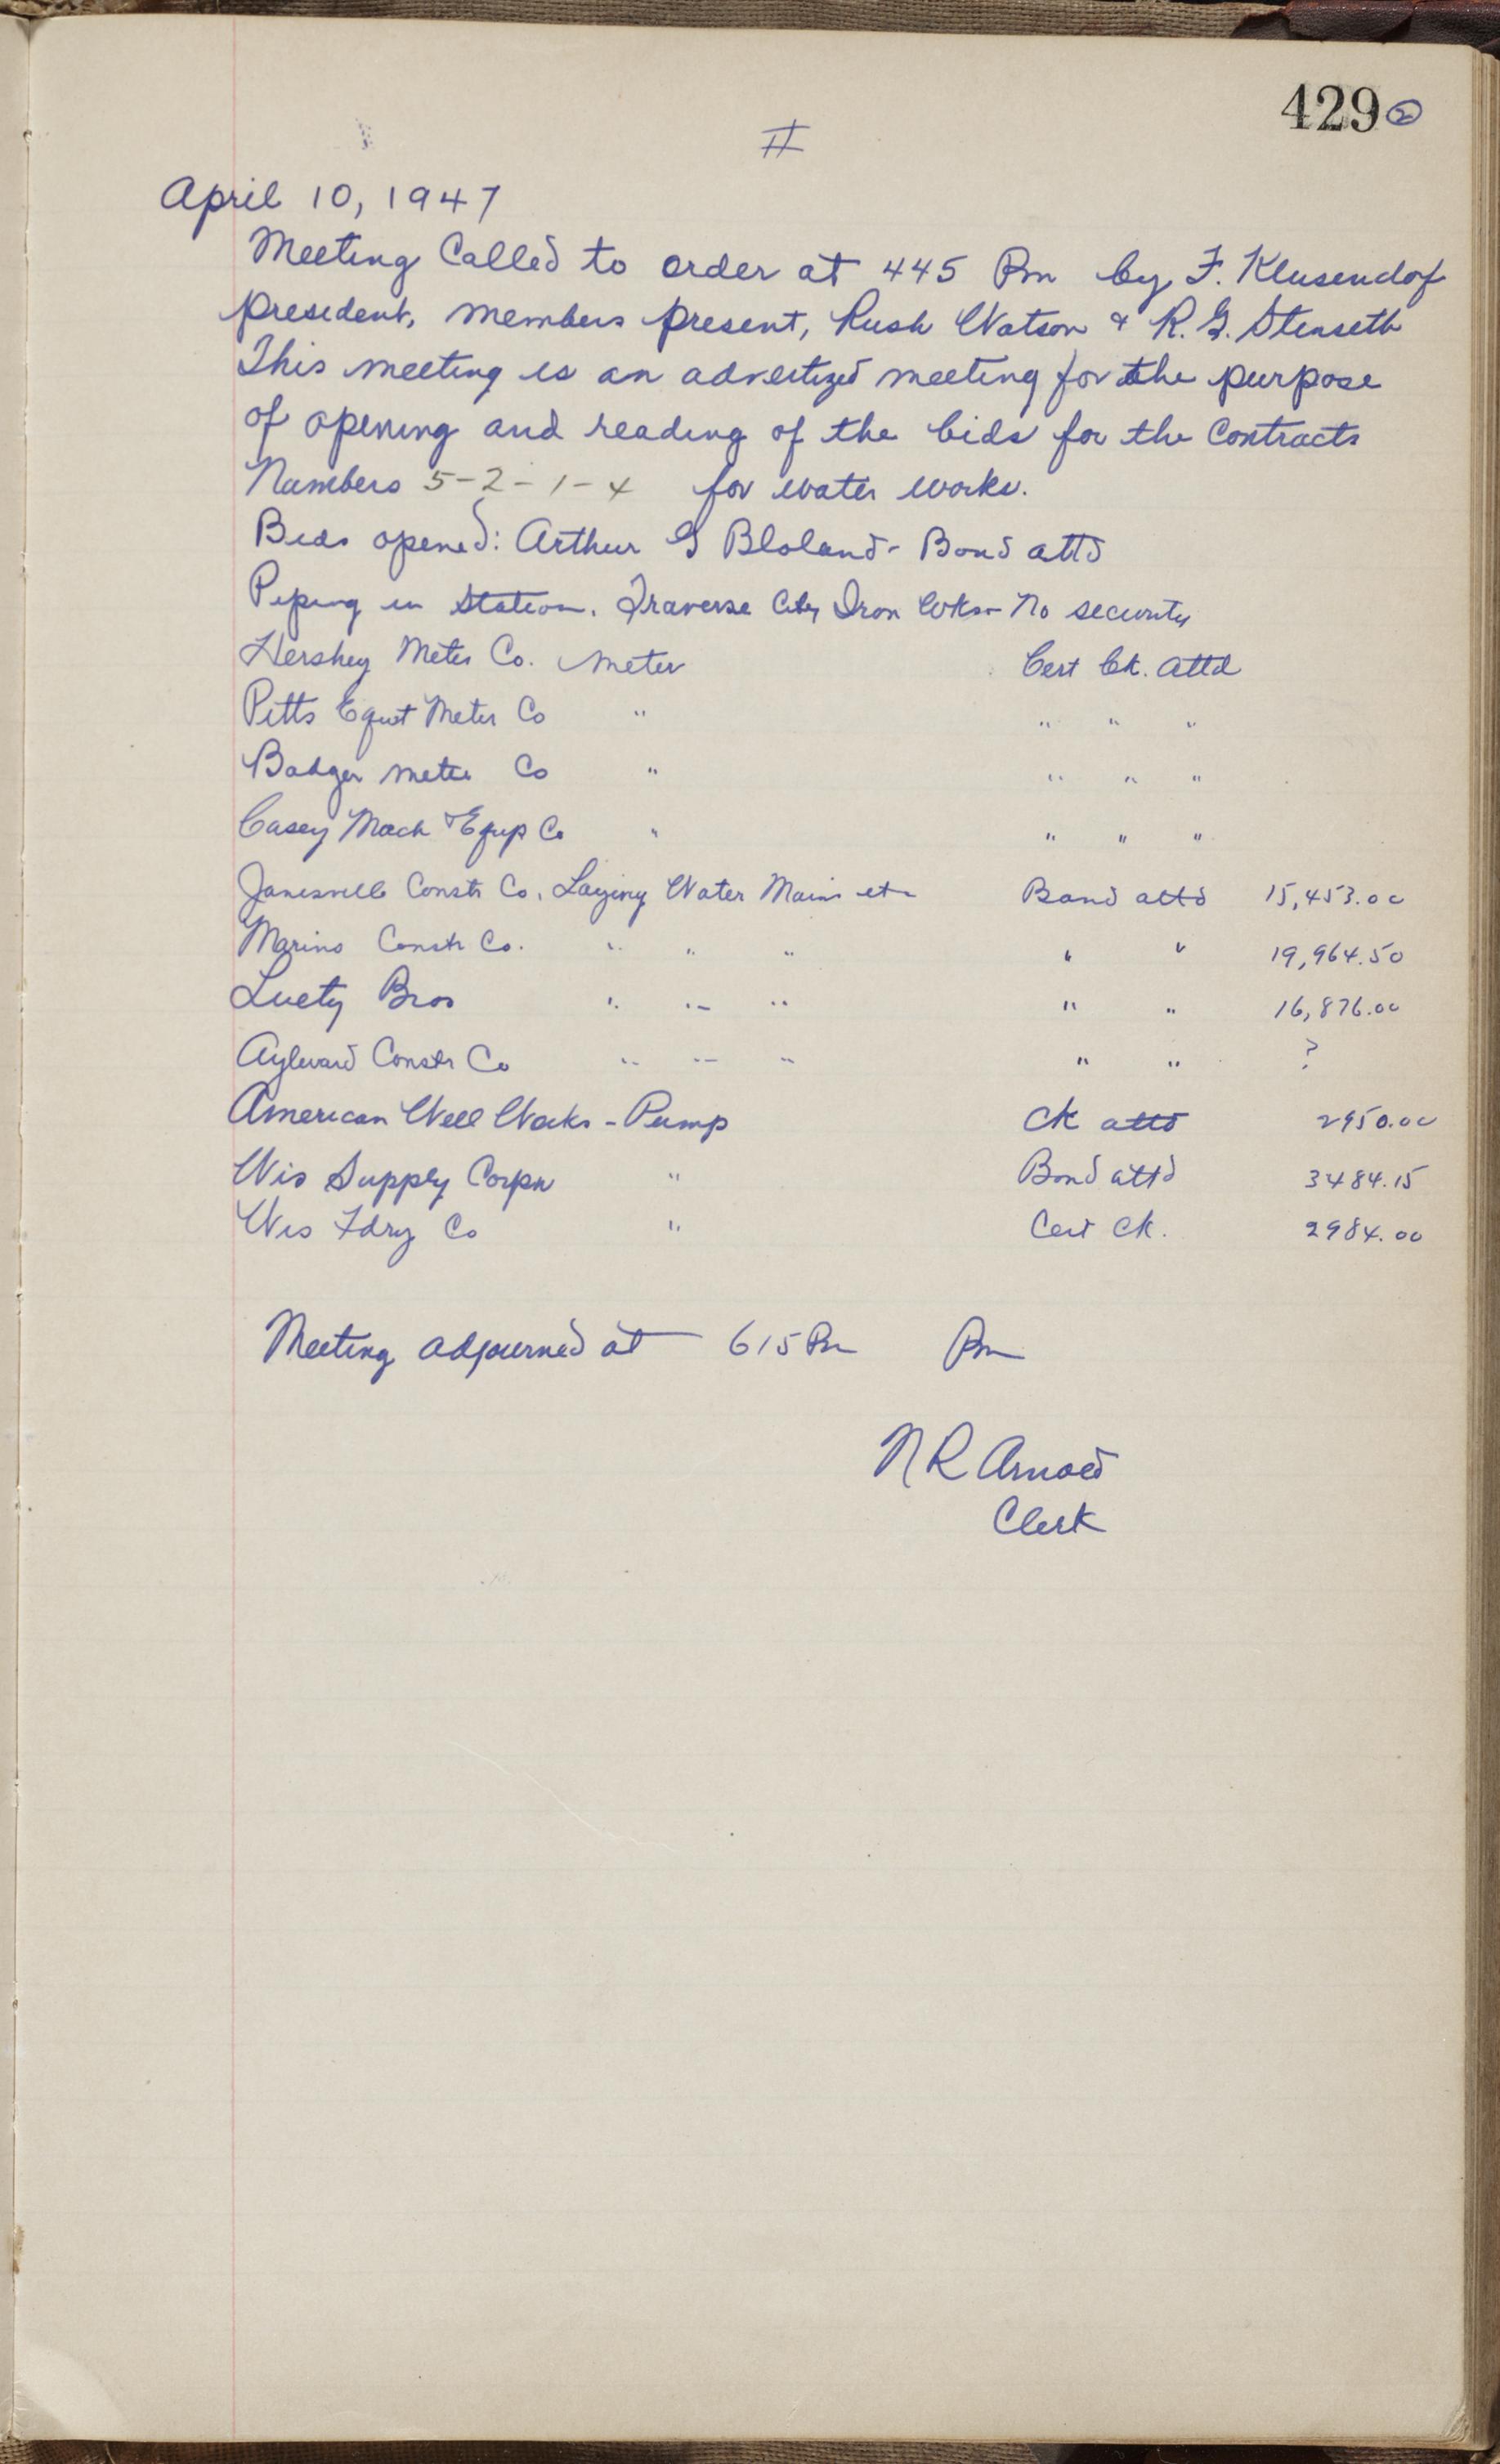 429 2
II
April 10, 1947
Meeting Called to order at 445 Pm by F. Klusendorf
president, members present, Rush Watson & R. G. Stenseth
This meeting is an advertized meeting for the purpose
of opening and reading of the bids for the Contracts
Numbers 5-2-1-4 for water works.
Bids opened: Arthur G Bloland - Bond attd
Piping in Station. Traverse City Iron Wks - No security
Hershey Meter Co. meter Cert Ck. attd
Pitts Eqnt Meter Co " " " "
Badger meter Co " " " "
Casey Mach & Equp Co " " " "
Janesville Constr Co. Laying Water Mains etc Bond attd 15,453.00
Marino Constr Co. " " " " " 19,964.50
Luety Bros " " " " " 16,876.00
Aylward Constr Co " " " " " ?
American Well Works - Pump Ck attd 2950.00
Wis Supply Corpn " Bond attd 3484.15
Wis Fdry Co " Cert Ck. 2984.00
Meeting adjourned at 615 Pm Pm
N R Arnold
Clerk